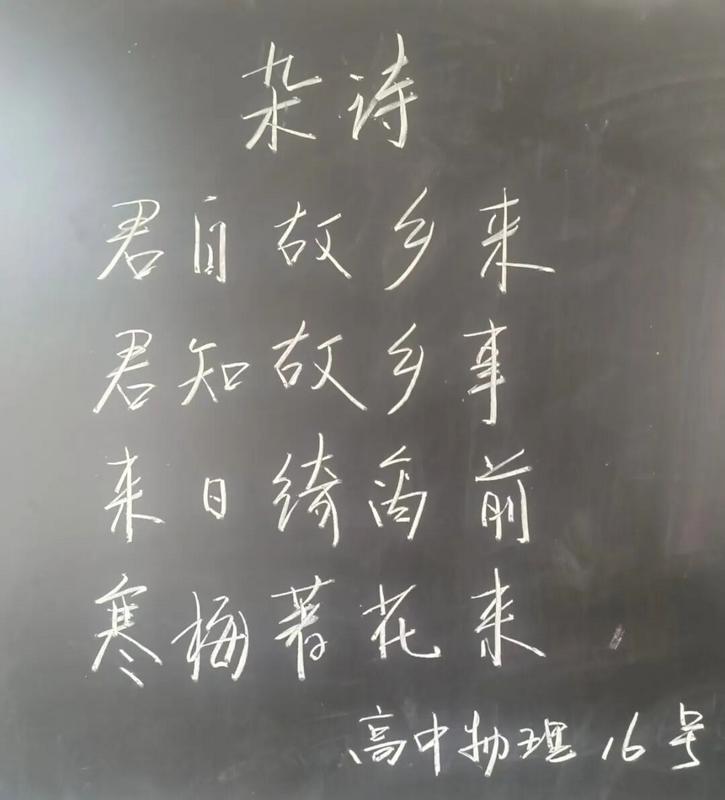 杂诗
君自故乡来
君知故乡事
来日绮窗前
寒梅著花来
高中物理16号